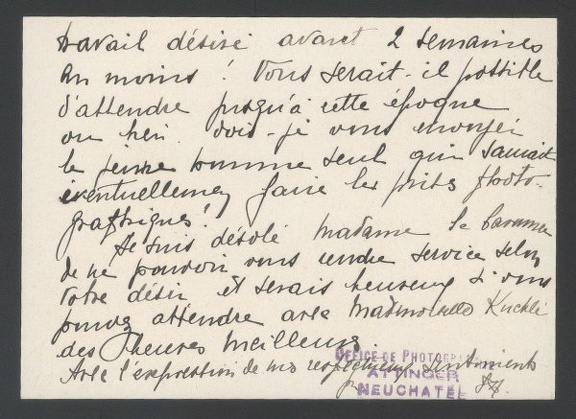 travail désiré avant 2 semaines
au moins ! Vous serait-il possible
d'attendre jusqu'à cette époque
ou bien dois-je vous envoyer
le jeune homme seul qui saurait
éventuellement faire les prises photo-
graphiques !
Je suis désolé madame la baronne
de ne pouvoir vous rendre service selon
votre désir et serais heureux si vous
pouvez attendre avec Mademoiselle
des heures meilleures
Avec l'expression de mes respectueux sentiments
OFFICE DE PHOTOGRAPHIE
ATTINGER
NEUCHATEL